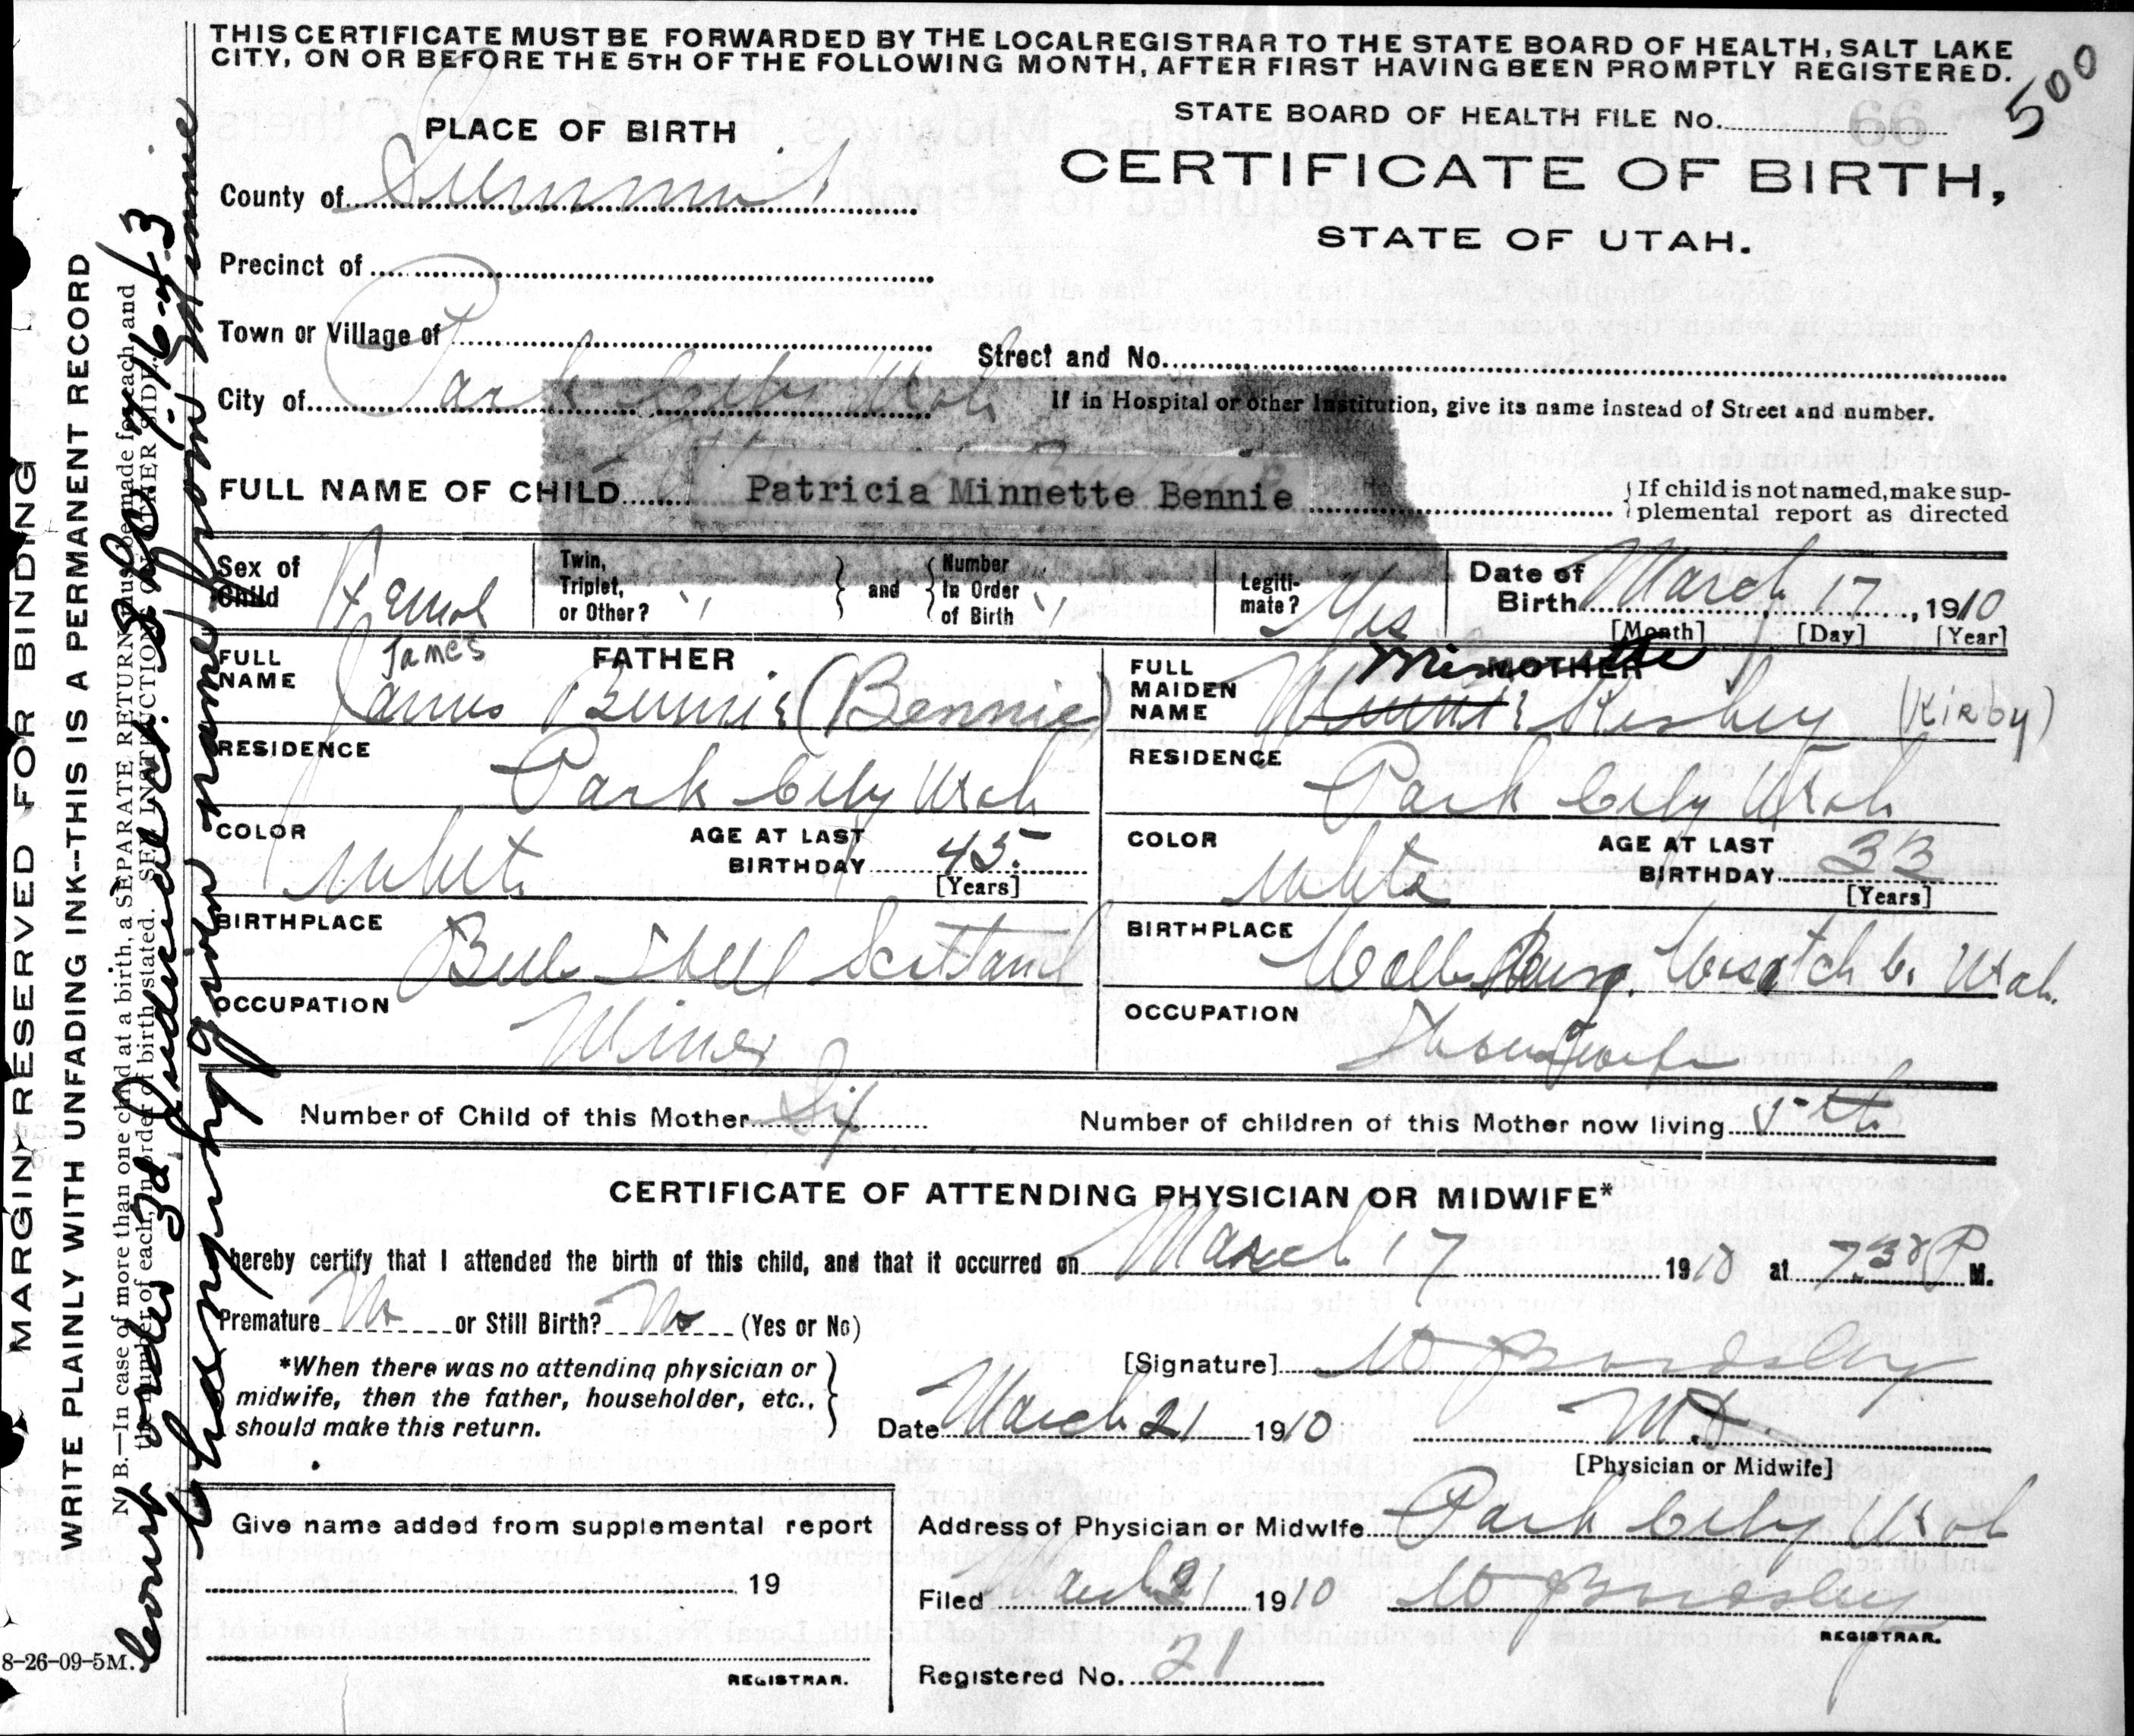 THIS CERTIFICATE MUST BE FORWARDED BY THE LOCAL REGISTRAR TO THE STATE BOARD OF HEALTH, SALT LAKE
CITY, ON OR BEFORE THE 5TH OF THE FOLLOWING MONTH, AFTER FIRST HAVING BEEN PROMPTLY REGISTERED.
500
PLACE OF BIRTH
STATE BOARD OF HEALTH FILE No.
CERTIFICATE OF BIRTH,
STATE OF UTAH.
County of Summit
Precinct of
Town or Village of
Street and No.
City of Park City Utah
If in Hospital or other Institution, give its name instead of Street and number.
FULL NAME OF CHILD Patricia Minnette Bennie
If child is not named, make sup-
plemental report as directed
Sex of Child Femal
Twin, Triplet, or Other? " and Number In Order of Birth "
Legiti-mate? Yes
Date of Birth March 17, 1910
[Month] [Day] [Year]
FATHER
FULL NAME James Bennie (Bennie)
James
MOTHER
FULL MAIDEN NAME Minnette Kirby (Kirby)
RESIDENCE Park City Utah
RESIDENCE Park City Utah
COLOR White
AGE AT LAST BIRTHDAY 45 [Years]
COLOR White
AGE AT LAST BIRTHDAY 33 [Years]
BIRTHPLACE Scotland
BIRTHPLACE Wallsburg. Wasatch Co. Utah.
OCCUPATION Miner
OCCUPATION Housewife
Number of Child of this Mother Six
Number of children of this Mother now living 5th
CERTIFICATE OF ATTENDING PHYSICIAN OR MIDWIFE*
hereby certify that I attended the birth of this child, and that it occurred on March 17 1910 at 7.30 P M.
Premature No or Still Birth? No (Yes or No)
*When there was no attending physician or
midwife, then the father, householder, etc.,
should make this return.
[Signature] W Bardsley
Date March 21 1910
M.D.
[Physician or Midwife]
Give name added from supplemental report
19
REGISTRAR.
Address of Physician or Midwife Park City Utah
Filed March 21 1910 W Bardsley
REGISTRAR.
Registered No. 21
MARGIN RESERVED FOR BINDING
WRITE PLAINLY WITH UNFADING INK--THIS IS A PERMANENT RECORD
N. B.—In case of more than one child at a birth, a SEPARATE RETURN must be made for each, and
the number of each, in order of birth stated. SEE INSTRUCTIONS ON OTHER SIDE.
Court order 3d Judicial Dist
Changing given name from Minnie
8-26-09-5M.